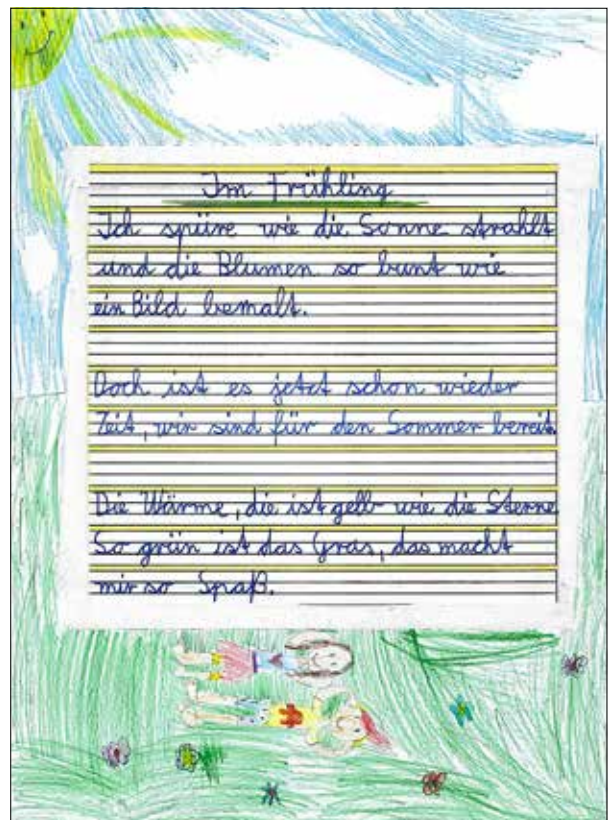 Im Frühling
Ich spüre wie die Sonne strahlt
und die Blumen so bunt wie
ein Bild bemalt.
Doch ist es jetzt schon wieder
Zeit, wir sind für den Sommer bereit.
Die Wärme, die ist gelb wie die Sterne
So grün ist das Gras, das macht
mir so Spaß.